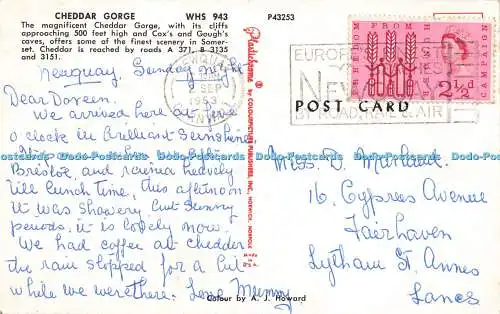 CHEDDAR GORGE WHS 943 P43253
The magnificent Cheddar Gorge, with its cliffs
approaching 500 feet high and Cox's and Gough's
caves, offers some of the finest scenery in Somer-
set. Cheddar is reached by roads A 371, B 3135
and 3151.
Newquay, Sunday night
Dear Doreen.
We arrived here at five
o'clock in brilliant sunshine
Bristol and raining heavily
till lunch time, this afternoon
it was showery but sunny
periods, it is lovely now.
We had coffee at Cheddar
the rain stopped for a bit
while we were there. Love Mummy
Plastichrome
by COLOURPICTURE PUBLISHERS, INC.
NEWQUAY
SEP
1963
CORNWALL
FREEDOM FROM HUNGER
CAMPAIGN
2½D
EUROP
NEW
BY ROAD, RAIL & AIR
POST CARD
Miss D.
16, Cypress Avenue
Fairhaven
Lytham St. Annes
Lancs
Colour by A. J. Howard
Docado-Postcards www.docado-postcards.com